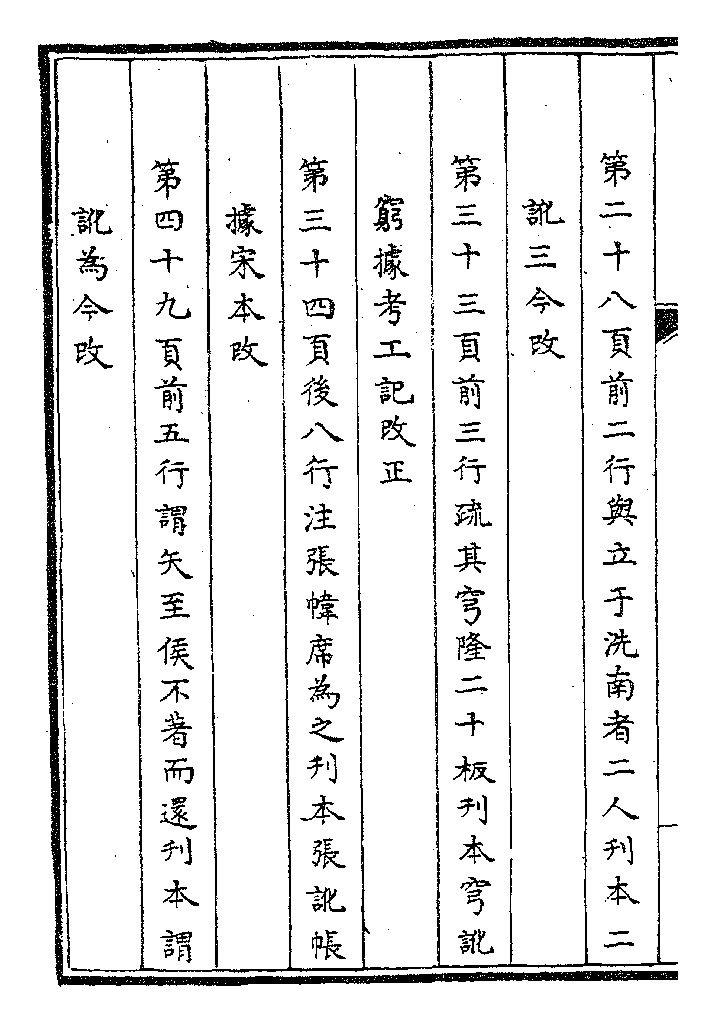 第二十八頁前二行與立于洗南者二人刊本二
訛三今改
第三十三頁前三行疏其穹隆二十板刊本穹訛
窮據考工記改正
第三十四頁後八行注張幃席為之刊本張訛帳
據宋本改
第四十九頁前五行謂矢至侯不著而還刊本謂
訛為今改